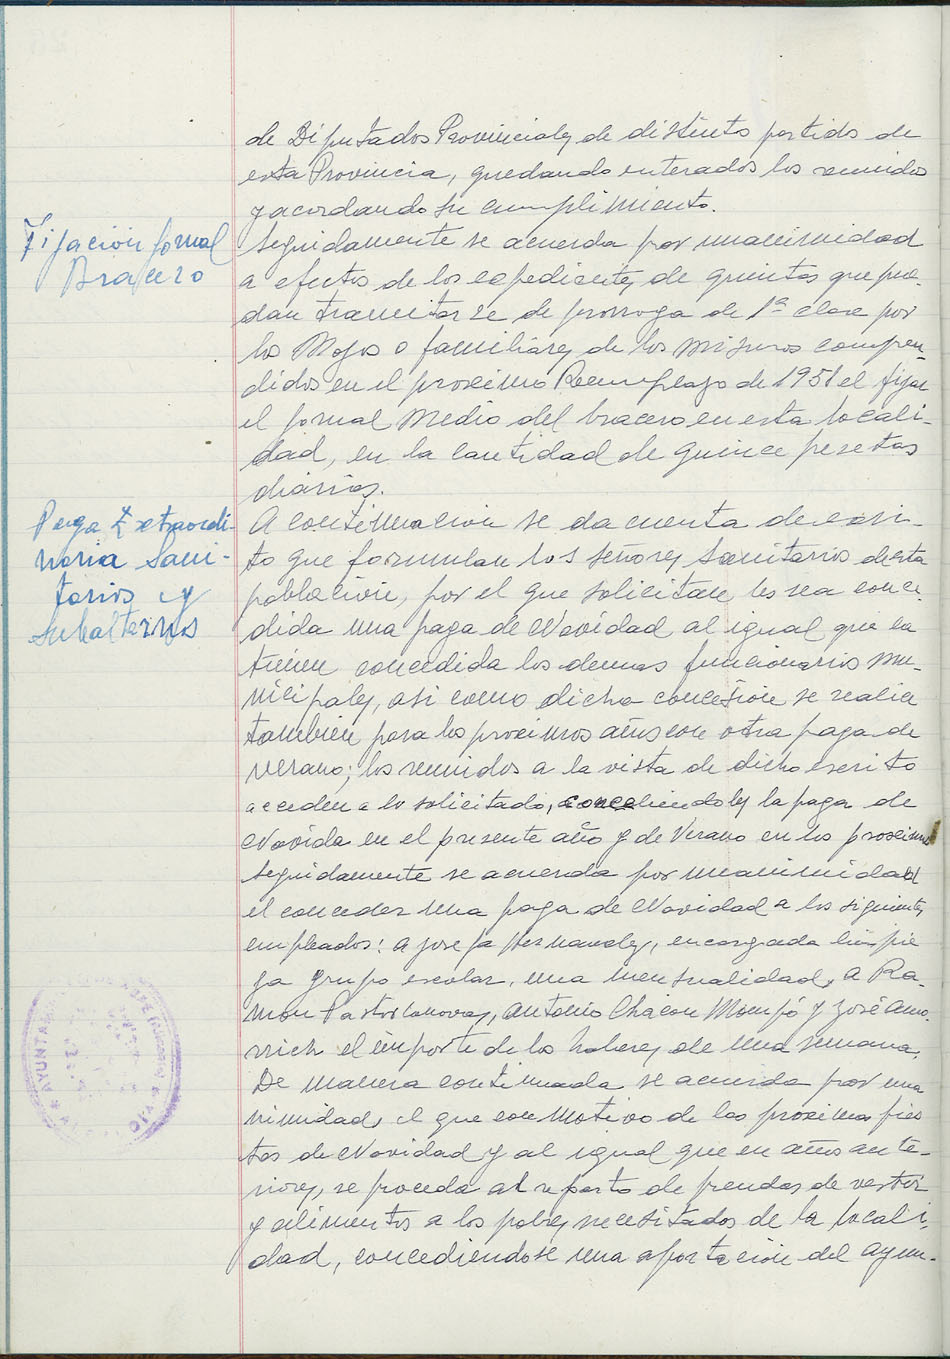 de Diputados Provinciales de distinto partido de
esta Provincia, quedando enterados los reunidos
y acordando su cumplimiento.
Fijación jornal
Bracero
Seguidamente se acuerda por unanimidad
a efectos de los expedientes de quintas que pue-
dan tramitarse de prorroga de 1ª clase por
los Mozos o familiares de los mismos compren-
didos en el proximo Reemplazo de 1951 el fijar
el jornal medio del bracero en esta locali-
dad, en la cantidad de quince pesetas
diarias.
Paga Extraordi-
naria Sani-
tarios y
Subalternos
A continuación se da cuenta de escri-
to que formulan los señores Sanitarios de esta
población, por el que solicitan les sea conce-
dida una paga de Navidad al igual que la
tienen concedida los demas funcionarios mu-
nicipales, asi como dicha concesión se realice
tambien para los proximos años con otra paga de
verano; los reunidos a la vista de dicho escrito
acceden a lo solicitado, concediendoles la paga de
Navida en el presente año y de Verano en los proximos
Seguidamente se acuerda por unanimidad
el conceder una paga de Navidad a los siguientes
empleados: a Josefa Hernandez, encargada limpie
za grupo escolar, una mensualidad, a Ra-
mon Pastor Canovas, Antonio Chacon Mompó y José Amo-
rich el importe de los haberes de una semana.
De manera continuada se acuerda por una
nimidad, el que con motivo de las proximas fies
tas de Navidad y al igual que en años ante-
riores, se proceda al reparto de prendas de vestir
y alimentos a los pobres necesitados de la locali-
dad, concediendose una aportación del Ayun-
AYUNTAMIENTO